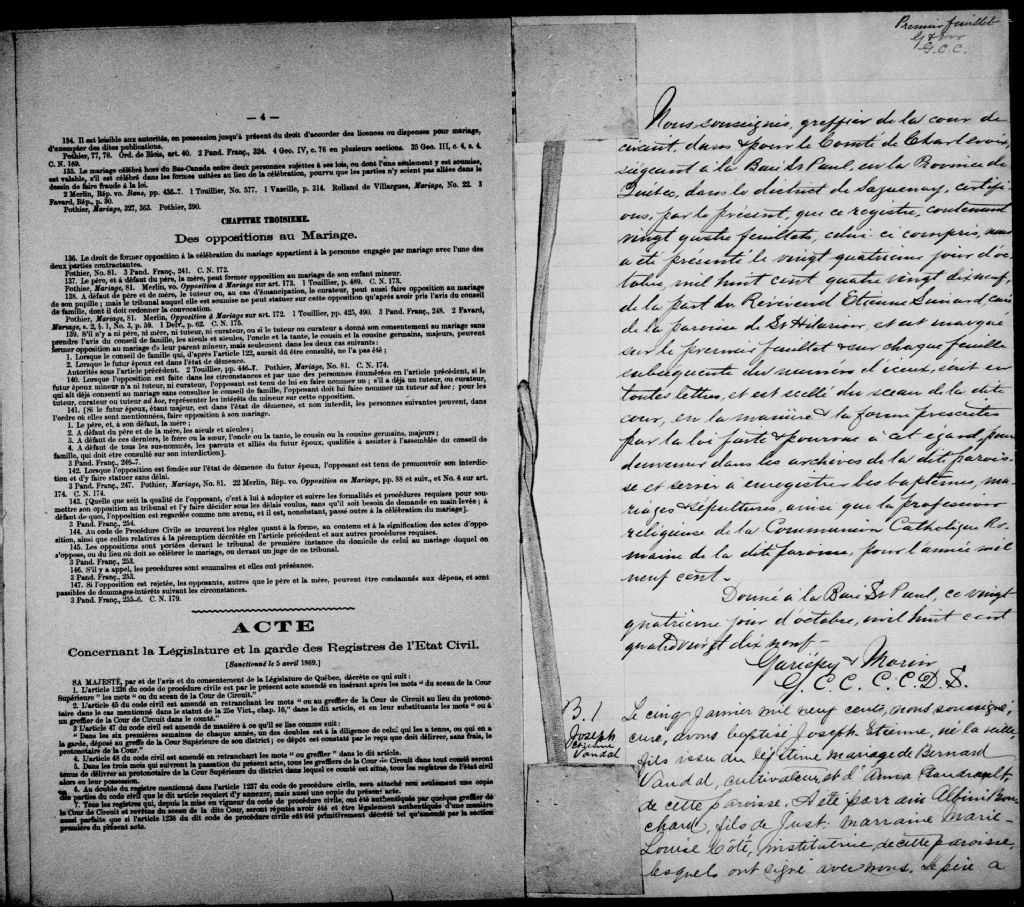 — 4 —
134. Il est loisible aux autorités, en possession jusqu'à présent du droit d'accorder des licences ou dispenses pour mariage,
d'exempter des dites publications.
Pothier, 77, 78. Ord. de Blois, art. 40. 2 Pand. Franç., 324. 4 Geo. IV, c. 76 en plusieurs sections. 35 Geo. III, c. 4, s. 4.
C. N. 169.
135. Le mariage célébré hors du Bas-Canada entre deux personnes sujettes à ses lois, ou dont l'une seulement y est soumise,
est valable, s'il est célébré dans les formes usitées au lieu de la célébration, pourvu que les parties n'y soient pas allées dans le
dessin de faire fraude à la loi.
2 Merlin, Rép. vo. Bans, pp. 436-7. 1 Touillier, No. 577. 1 Vazeille, p. 314. Rolland de Villargues, Mariage, No. 22. 3
Favard, Rép., p. 30.
Pothier, Mariage, 327, 363. Pothier, 390.
CHAPITRE TROISIEME.
Des oppositions au Mariage.
136. Le droit de former opposition à la célébration du mariage appartient à la personne engagée par mariage avec l'une des
deux parties contractantes.
Pothier, No. 81. 3 Pand. Franç., 241. C. N. 172.
137. Le père, et à défaut du père, la mère, peut former opposition au mariage de son enfant mineur.
Pothier, Mariage, 81. Merlin, vo. Opposition à Mariage sur art. 173. 1 Touillier, p. 489. C. N. 173.
138. A défaut de père et de mère, le tuteur ou, au cas d'émancipation, le curateur, peut aussi faire opposition au mariage
de son pupille; mais le tribunal auquel elle est soumise ne peut statuer sur cette opposition qu'après avoir pris l'avis du conseil
de famille, dont il doit ordonner la convocation.
Pothier, Mariage, 81. Merlin, Opposition à Mariage sur art. 172. 1 Touillier, pp. 425, 490. 3 Pand. Franç., 248. 2 Favard,
Mariage, s. 2, § 1, No. 3, p. 59. 1 Delv., p. 62. C. N. 175.
139. S'il n'y a ni père, ni mère, ni tuteur, ni curateur, ou si le tuteur ou curateur a donné son consentement au mariage sans
prendre l'avis du conseil de famille, les aïeuls et aïeules, l'oncle et la tante, le cousin et la cousine germains, majeurs, peuvent
former opposition au mariage de leur parent mineur, mais seulement dans les deux cas suivants:
1. Lorsque le conseil de famille qui, d'après l'article 122, aurait dû être consulté, ne l'a pas été;
2. Lorsque le futur époux est dans l'état de démence.
Autorités sous l'article précédent. 2 Touillier, pp. 446-7. Pothier, Mariage, No. 81. C. N. 174.
140. Lorsque l'opposition est faite dans les circonstances et par une des personnes énumérées en l'article précédent, si le
futur époux mineur n'a ni tuteur, ni curateur, l'opposant est tenu de lui en faire nommer un; s'il a déjà un tuteur, ou curateur,
qui ait déjà consenti au mariage sans consulter le conseil de famille, l'opposant doit lui faire nommer un tuteur ad hoc; pour les
tuteur, curateur ou tuteur ad hoc, représenter les intérêts du mineur sur cette opposition.
141. [Si le futur époux, étant majeur, est dans l'état de démence, et non interdit, les personnes suivantes peuvent, dans
l'ordre où elles sont mentionnées, faire opposition à son mariage.
1. Le père, et, à son défaut, la mère;
2. A défaut du père et de la mère, les aïeuls et aïeules;
3. A défaut de ces derniers, le frère ou la sœur, l'oncle ou la tante, le cousin ou la cousine germains, majeurs;
4. A défaut de tous les sus-nommés, les parents et alliés du futur époux, qualifiés à assister à l'assemblée du conseil de
famille, qui doit être consulté sur son interdiction].
3 Pand. Franç., 246-7.
142. Lorsque l'opposition est fondée sur l'état de démence du futur époux, l'opposant est tenu de promouvoir son interdic-
tion et d'y faire statuer sans délai.
3 Pand. Franç., 247. Pothier, Mariage, No. 81. 22 Merlin, Rép. vo. Opposition au Mariage, pp. 88 et suiv., et No. 4 sur art.
174. C. N. 174.
143. [Quelle que soit la qualité de l'opposant, c'est à lui à adopter et suivre les formalités et procédures requises pour sou-
mettre son opposition au tribunal et l'y faire décider sous les délais voulus, sans qu'il soit besoin de demande en main-levée; à
défaut de quoi, l'opposition est regardée comme non avenue, et il est, nonobstant, passé outre à la célébration du mariage].
3 Pand. Franç., 254.
144. Au code de Procédure Civile se trouvent les règles quant à la forme, au contenu et à la signification des actes d'oppo-
sition, ainsi que celles relatives à la péremption décrétée en l'article précédent et aux autres procédures requises.
145. Les oppositions sont portées devant le tribunal de première instance du domicile de celui au mariage duquel on
s'oppose, ou du lieu où doit se célébrer le mariage, ou devant un juge de ce tribunal.
3 Pand. Franç., 253.
146. S'il y a appel, les procédures sont sommaires et elles ont préséance.
3 Pand. Franç., 253.
147. Si l'opposition est rejetée, les opposants, autres que le père et la mère, peuvent être condamnés aux dépens, et sont
passibles de dommages-intérêts suivant les circonstances.
3 Pand. Franç., 255-6. C. N. 179.
ACTE
Concernant la Législature et la garde des Registres de l'Etat Civil.
[Sanctionné le 5 avril 1869.]
SA MAJESTÉ, par et de l'avis et du consentement de la Législature de Québec, décrète ce qui suit:
1. L'article 1236 du code de procédure civile est par le présent acte amendé en insérant après les mots "du sceau de la Cour
Supérieure" les mots "ou du sceau de la Cour de Circuit."
2. L'article 45 du code civil est amendé en retranchant les mots "ou au greffier de la Cour de Circuit au lieu du protono-
taire dans le cas mentionné dans le statut de la 25e Vict., chap. 16," dans le dit article, et en leur substituants les mots "ou à
un greffier de la Cour de Circuit dans le comté."
3 L'article 47 du code civil est amendé de manière à ce qu'il se lise comme suit:
"Dans les six premières semaines de chaque année, un des doubles est à la diligence de celui qui les a tenus, ou qui en a
la garde, déposé au greffe de la Cour Supérieure de son district; ce dépôt est constaté par le reçu que doit délivrer, sans frais, le
protonotaire de la Cour."
4. L'article 48 du code civil est amendé en retranchant les mots "ou greffier" dans le dit article.
5. Dans les trois mois qui suivent la passation du présent acte, tous les greffiers de la Cour de Circuit dans tout comté seront
tenus de délivrer au protonotaire de la Cour Supérieure du district dans lequel ce comté est situé, tous les registres de l'état civil
alors en leur possession.
6. Au double du registre mentionné dans l'article 1237 du code de procédure civile, sera attaché non seulement une copie
des parties du code civil que le dit article requiert d'y annexer, mais aussi une copie du présent acte.
7. Tous les registres qui, depuis la mise en vigueur du code de procédure civile, ont été authentiqués par quelque greffier de
la Cour de Circuit et revêtus du sceau de la dite Cour, seront réputés avoir été et être légalement authentiqués d'une manière
aussi parfaite que si l'article 1236 du dit code de procédure civile eût été primitivement décrété tel qu'amendé par la section
première du présent acte.
Premier feuillet
G & M
G. C. C.
Nous soussignés, greffier de la cour de
circuit, dans & pour le Comté de Charlevoix,
siégeant à la Baie St Paul, en la Province de
Québec, dans le district de Saguenay, certifi-
ons, par le présent, que ce registre, contenant
vingt quatre feuillets, celui ci compris, nous
a été présenté le vingt quatrieme jour d'oc-
tobre, mil huit cent quatre vingt dix neuf,
de la part du Révérend Etienne Simard, curé
de la paroisse de St Hilarion, et est marqué
sur le premier feuillet & sur chaque feuille
subséquente du numéro d'iceux, écrit en
toutes lettres, et est scellé du sceau de la dite
cour, en la manière & la forme prescrites
par la loi faite & pourvue à cet égard, pour
demeurer dans les archives de la dite parois-
se et servir à enregistrer les baptêmes, ma-
riages & sépultures, ainsi que la profession
religieuse de la Communion Catholique Ro-
maine de la dite paroisse, pour l'année mil
neuf cent.
Donné à la Baie St Paul, ce vingt
quatrième jour d'octobre, mil huit cent
quatre vingt dix neuf.
Gariépy & Morin
G. C. C. C. C. D. S.
B. 1
Joseph
Etienne
Vandal
Le cinq Janvier mil neuf cent, nous soussigné,
curé, avons baptisé Joseph Etienne, né la veille,
fils issu du légitime mariage de Bernard
Vandal, cultivateur, et d'Anna Gaudreault
de cette paroisse. A été parrain Albini Bou-
chard, fils de Just. Marraine Marie-
Louise Côté, institutrice, de cette paroisse,
lesquels ont signé avec nous. Le père a